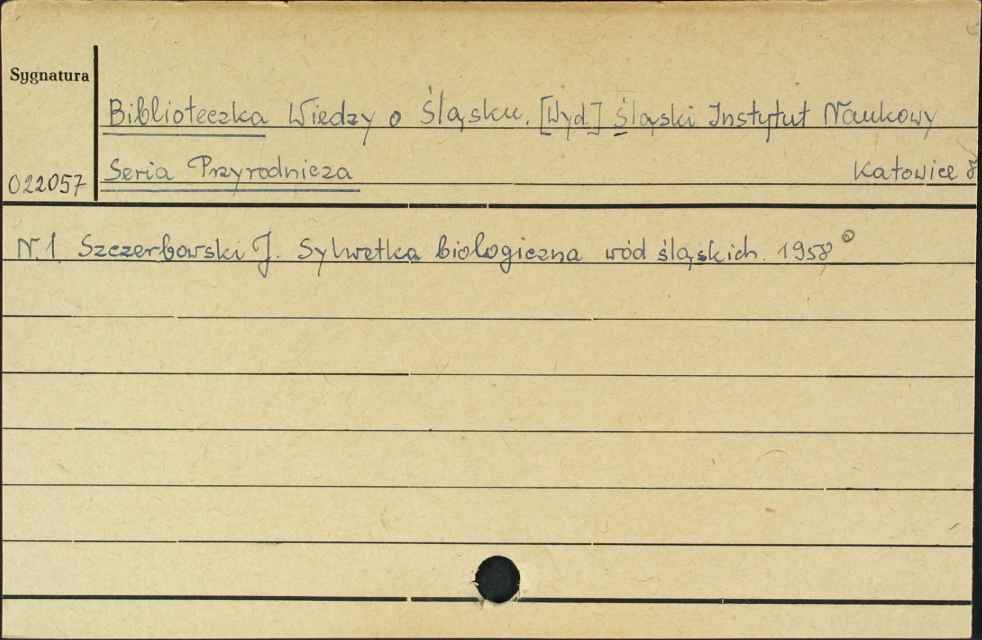 Sygnatura
Biblioteczka Wiedzy o Śląsku. [Wyd.] Śląski Instytut Naukowy
022057 Seria Przyrodnicza Katowice 8
N. 1 Szczerbowski J. Sylwetka biologiczna wód śląskich. 1958